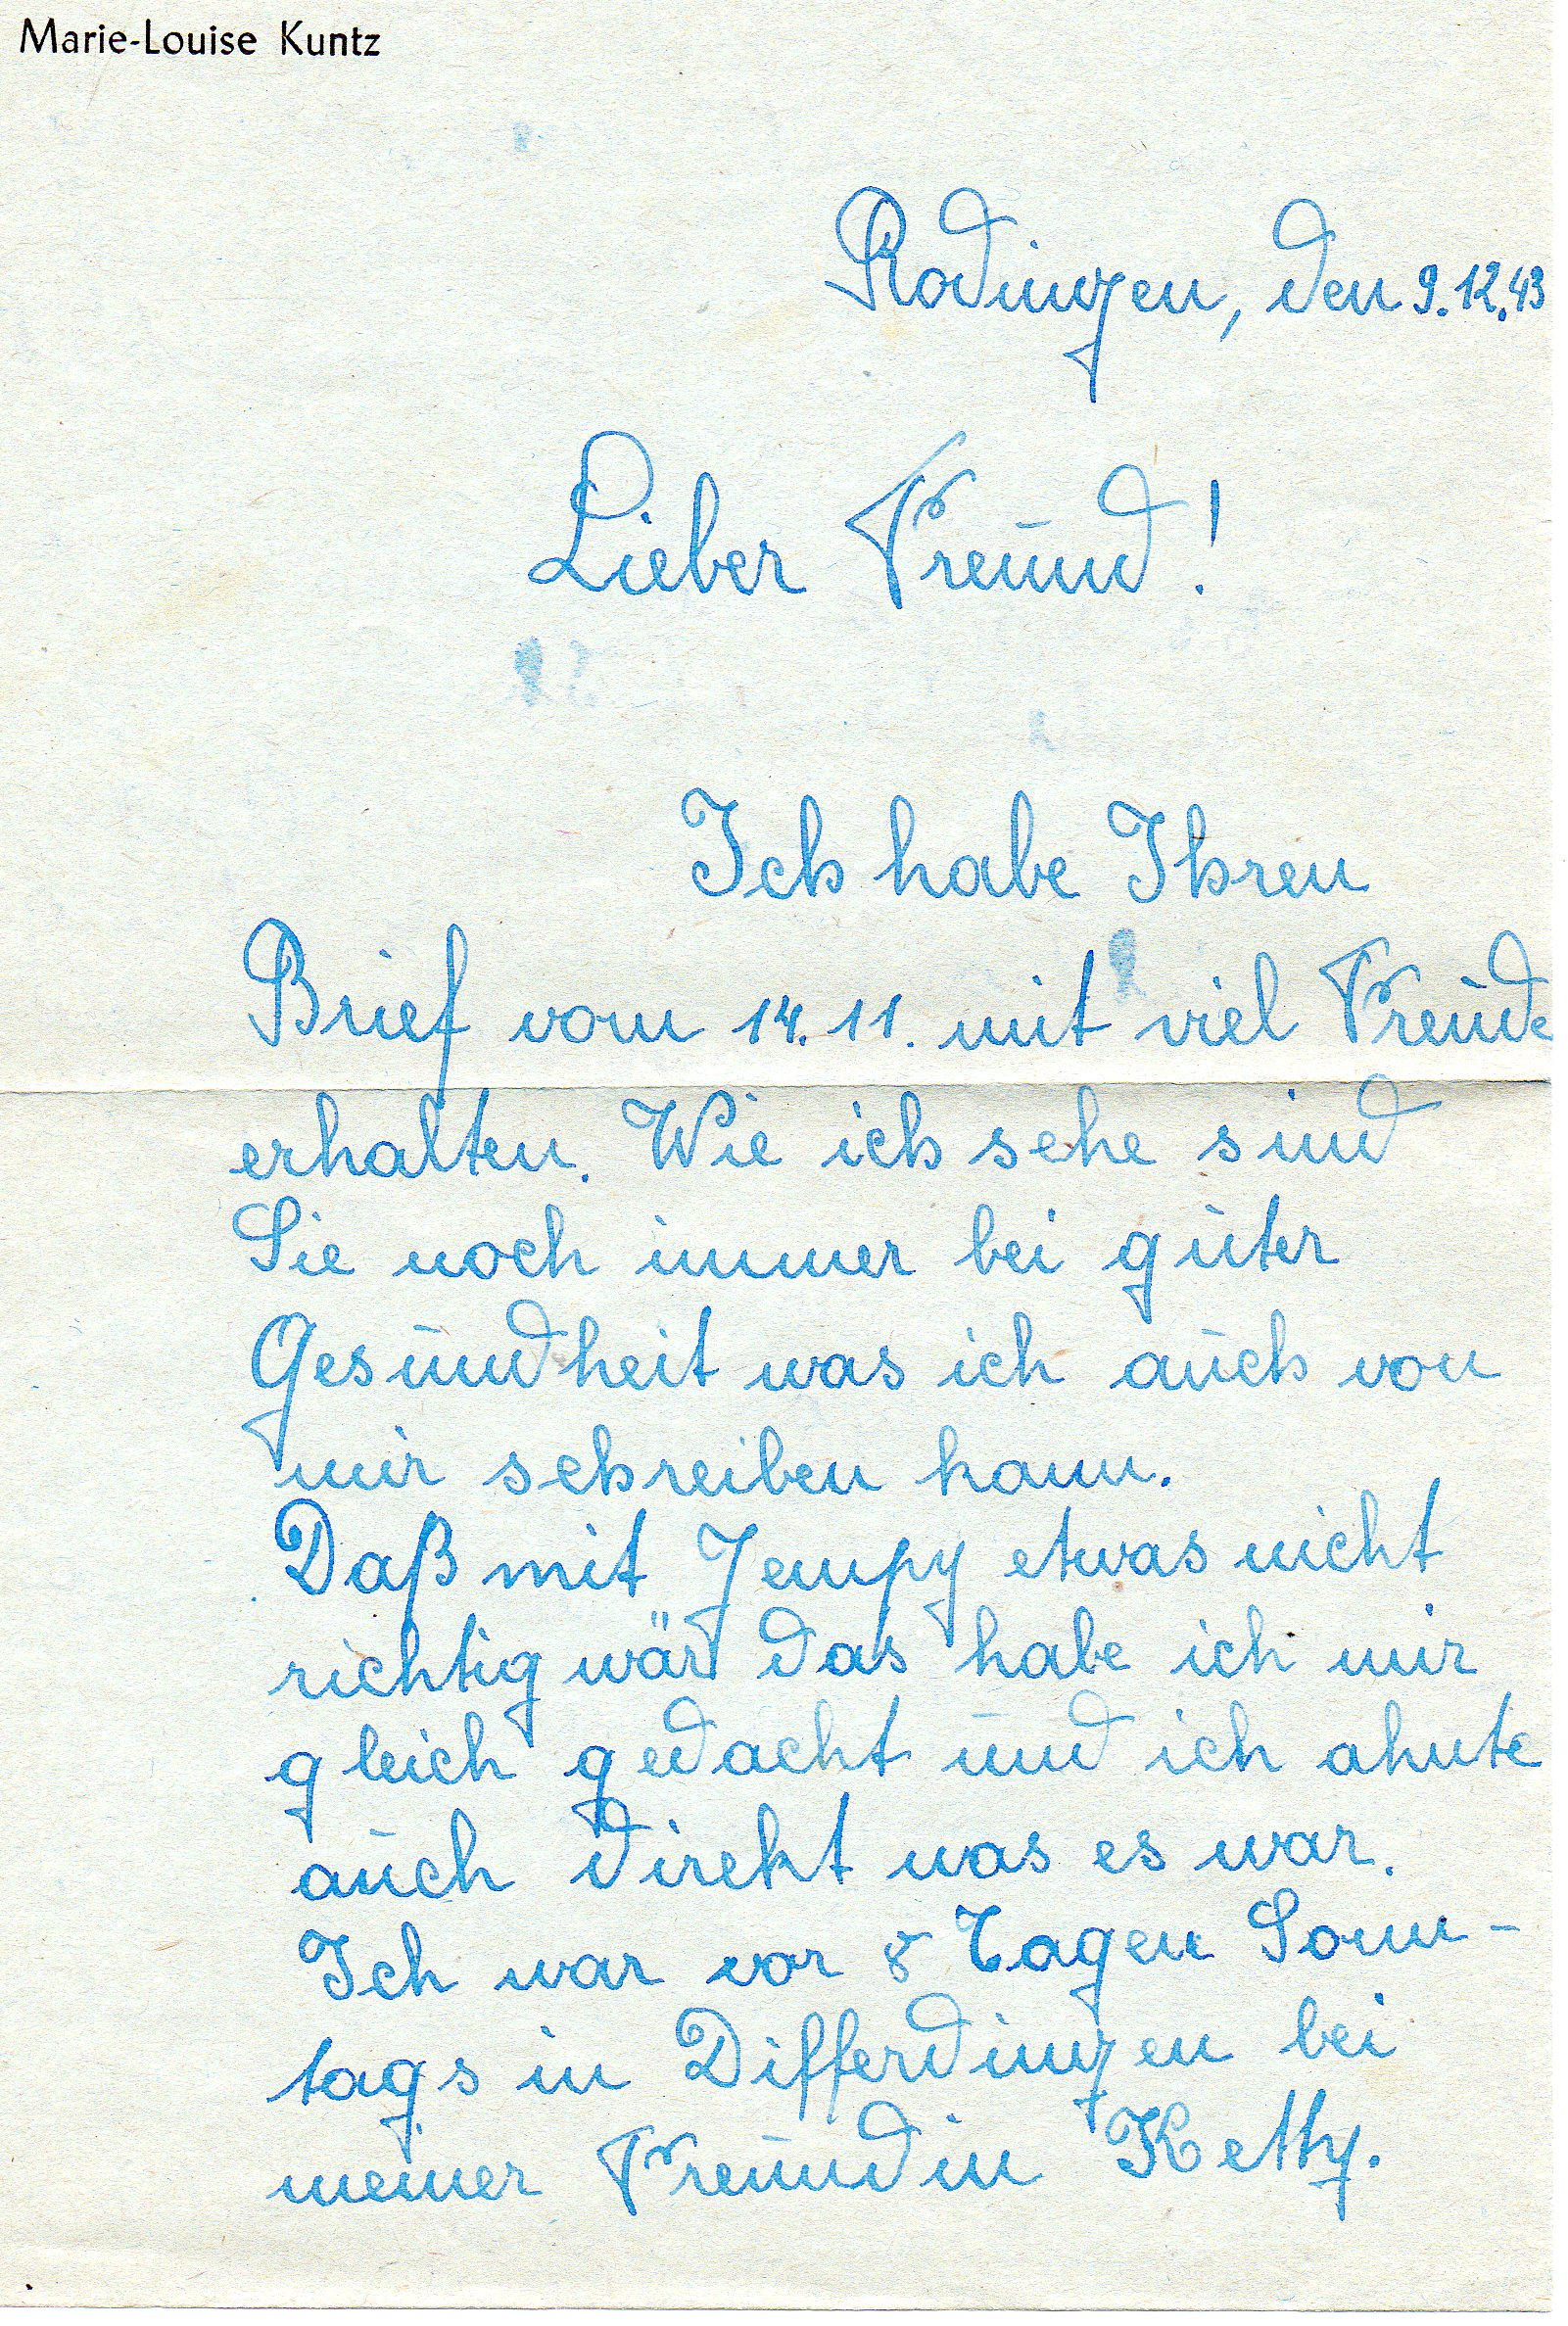 Marie-Louise Kuntz
Rodingen, den 9.12.43
Lieber Freund!
Ich habe Ihren
Brief vom 14.11. mit viel Freude
erhalten. Wie ich sehe sind
Sie noch immer bei guter
Gesundheit was ich auch von
mir schreiben kann.
Daß mit Jempy etwas nicht
richtig wär das habe ich mir
gleich gedacht und ich ahnte
auch direkt was es war.
Ich war vor 8 Tagen Sonn-
tags in Differdingen bei
meiner Freundin Ketty.